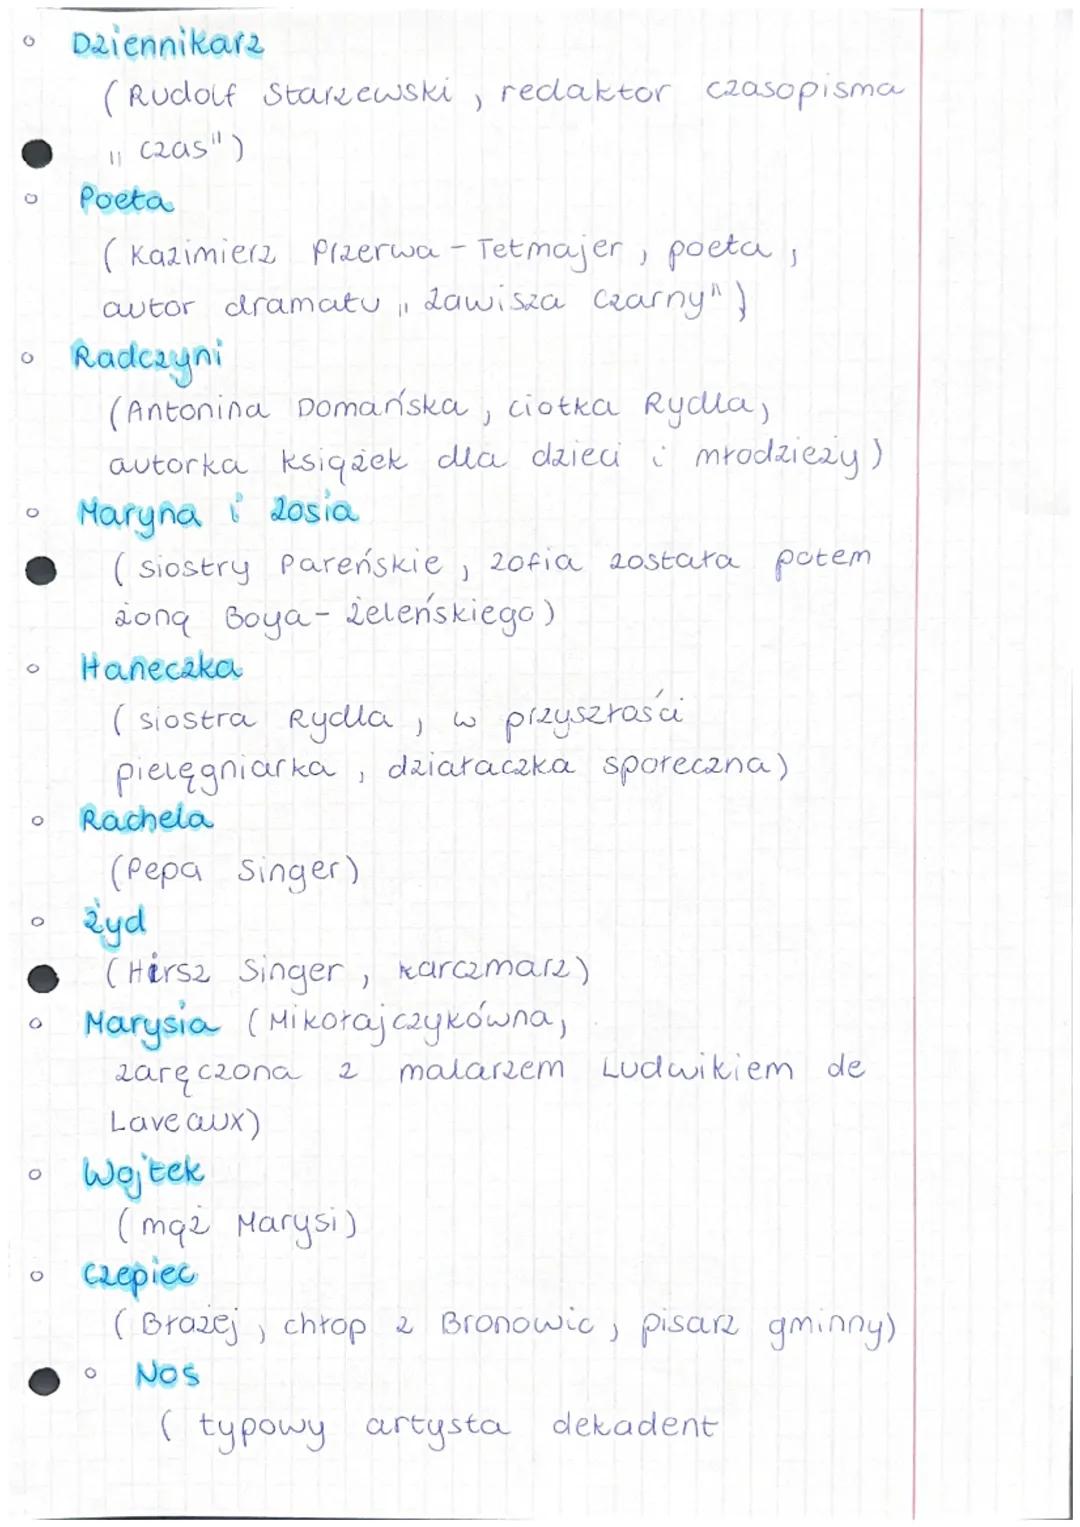 Dziennikarz
(Rudolf Starzewski, redaktor czasopisma
„czas")
Poeta
(Kazimierz Przerwa-Tetmajer, poeta,
autor dramatu „Zawisza Czarny")
Radczyni
(Antonina Domańska, ciotka Rydla,
autorka książek dla dzieci i młodzieży)
Maryna i Zosia
(siostry Pareńskie, Zofia została potem
żoną Boya-Żeleńskiego)
Haneczka
(siostra Rydla, w przyszłości
pielęgniarka, działaczka społeczna)
Rachela
(Pepa Singer)
Żyd
(Hirsz Singer, karczmarz)
Marysia (Mikołajczykówna,
zaręczona z malarzem Ludwikiem de
Laveaux)
Wojtek
(mąż Marysi)
Czepiec
(Błażej, chłop z Bronowic, pisarz gminny)
Nos
(typowy artysta dekadent